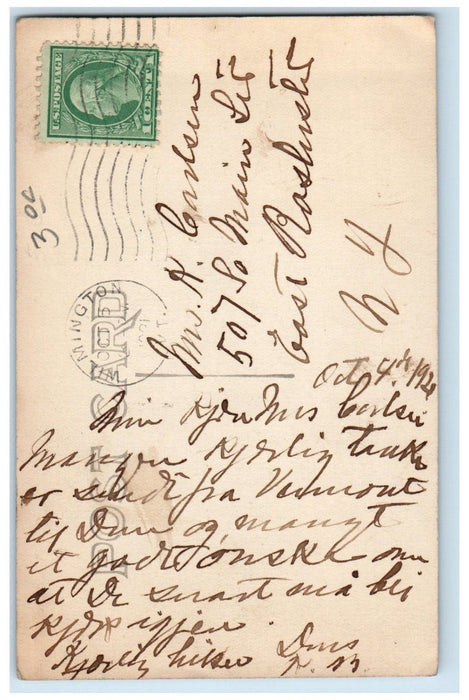 U.S. POSTAGE
1 CENT 1
3 00
WILMINGTON
OCT
POST CARD
Mrs. K. Carlsen
507 So Main St
East Rochester
N Y
Oct 4th 192
Min kjære Mrs Carlsen
Mangen kjerlig tanke
er sendt fra Vermont
til Dem og mangt
et godt ønske om
at De snart må bli
kjæk igjen.
Kjerlig hilsen Deres